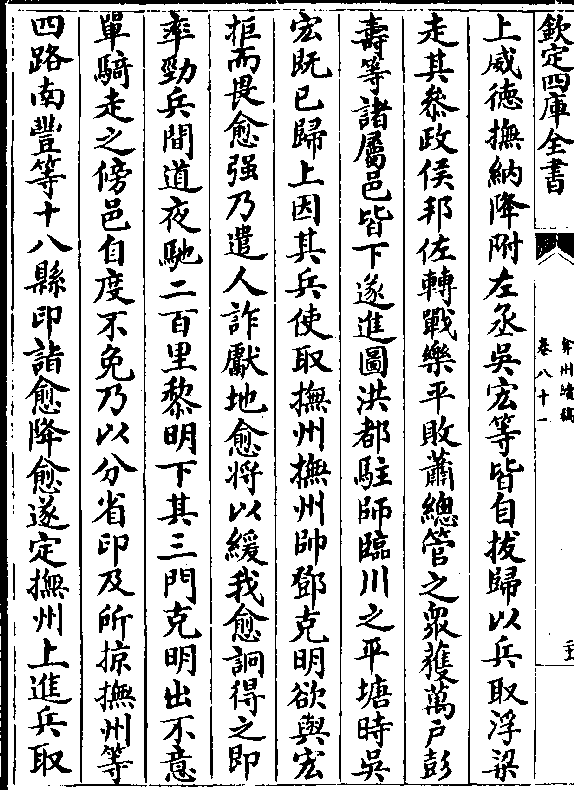 欽定四庫全書
弇州續稿
卷八十一
上威德撫納降附左丞吳宏等皆自拔歸以兵取浮梁
走其叅政侯邦佐轉戰樂平敗蕭總管之衆獲萬户彭
壽等諸屬邑皆下遂進圖洪都駐師臨川之平塘時吳
宏既已歸上因其兵使取撫州撫州帥鄧克明欲與宏
拒而畏愈强乃遣人詐獻地愈將以緩我愈詗得之即
率勁兵間道夜馳二百里黎明下其三門克明出不意
單騎走之傍邑自度不免乃以分省印及所掠撫州等
四路南豐等十八縣印詣愈降愈遂定撫州上進兵取